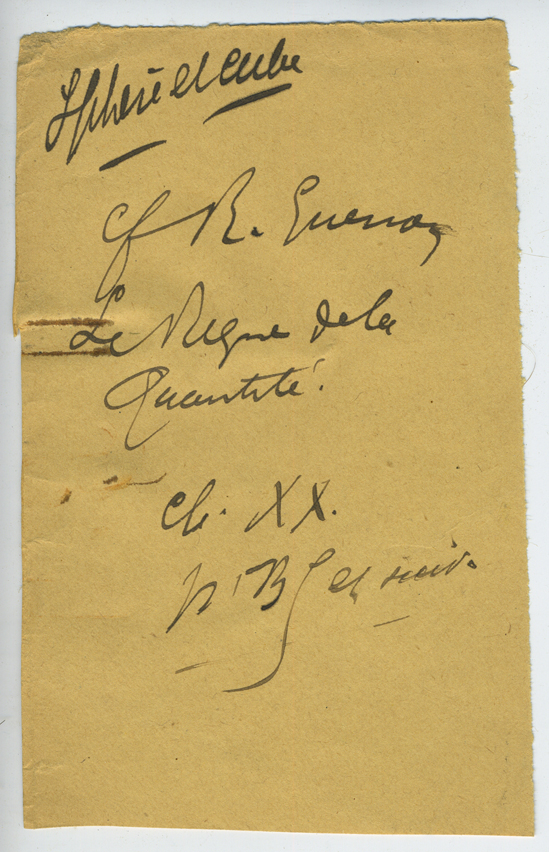 Sphère et cube
cf R. Guenon
Le Règne de la
Quantité.
ch. XX.
et suiv.